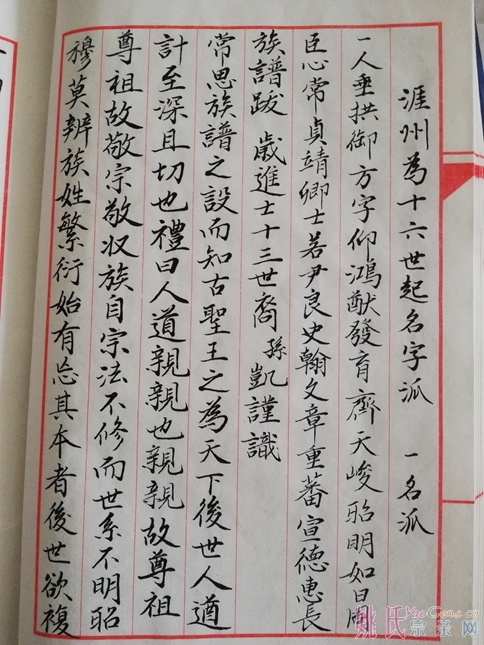 涯州為十六世起名字派　一名派
一人垂拱御方字仰鴻猷發育齊天峻昭明如日周
臣心常貞靖卿士若尹良史翰文章重蕃宣德惠長
族譜跋　歲進士十三世裔孫凱謹識
常思族譜之設而知古聖王之為天下後世人遒
計至深且切也禮曰人道親親也親親故尊祖
尊祖故敬宗敬収族自宗法不修而世系不明昭
穆莫辨族姓繁衍始有忘其本者後世欲複
姚氏宗亲网
YaoGens.cn